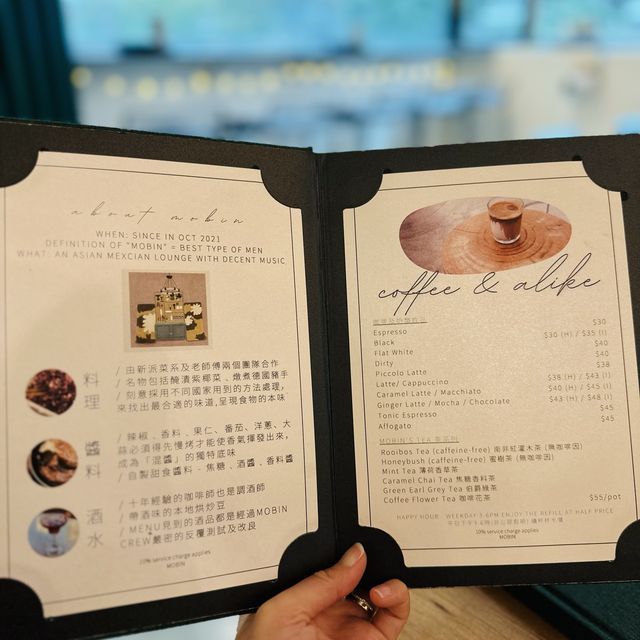 about mobin
WHEN: SINCE IN OCT 2021
DEFINITION OF "MOBIN" = BEST TYPE OF MEN
WHAT: AN ASIAN MEXCIAN LOUNGE WITH DECENT MUSIC
料理
/ 由新派菜系及老師傅兩個團隊合作
/ 名物包括醃漬紫椰菜、燉煮德國豬手
/ 刻意採用不同國家用到的方法處理,
來找出最合適的味道,呈現食物的本味
醬料
/ 辣椒、香料、果仁、番茄、洋蔥、大
蒜必須得先慢烤才能使香氣揮發出來,
成為「混醬」的獨特底味
/ 自製甜食醬料 - 焦糖、酒醬、香料醬
酒水
/ 十年經驗的咖啡師也是調酒師
/ 帶酒味的本地烘炒豆
/ MENU見到的酒品都是經過MOBIN
CREW嚴密的反覆測試及改良
10% service charge applies
MOBIN
coffee & alike
Espresso $30
Black $30 (H) / $35 (I)
Flat White $40
Dirty $40
Piccolo Latte $38
Latte/ Cappuccino $38 (H) / $43 (I)
Caramel Latte / Macchiato $40 (H) / $45 (I)
Ginger Latte / Mocha / Chocolate $43 (H) / $48 (I)
Tonic Espresso $45
Affogato $45
MOBIN'S TEA 茶系列
Rooibos Tea (caffeine-free) 南非紅灌木茶 (無咖啡因)
Honeybush (caffeine-free) 蜜樹茶 (無咖啡因)
Mint Tea 薄荷香草茶
Caramel Chai Tea 焦糖香料茶
Green Earl Grey Tea 伯爵綠茶
Coffee Flower Tea 咖啡花茶 $55/pot
HAPPY HOUR - WEEKDAY 3-6PM ENJOY THE REFILL AT HALF PRICE
10% service charge applies
MOBIN